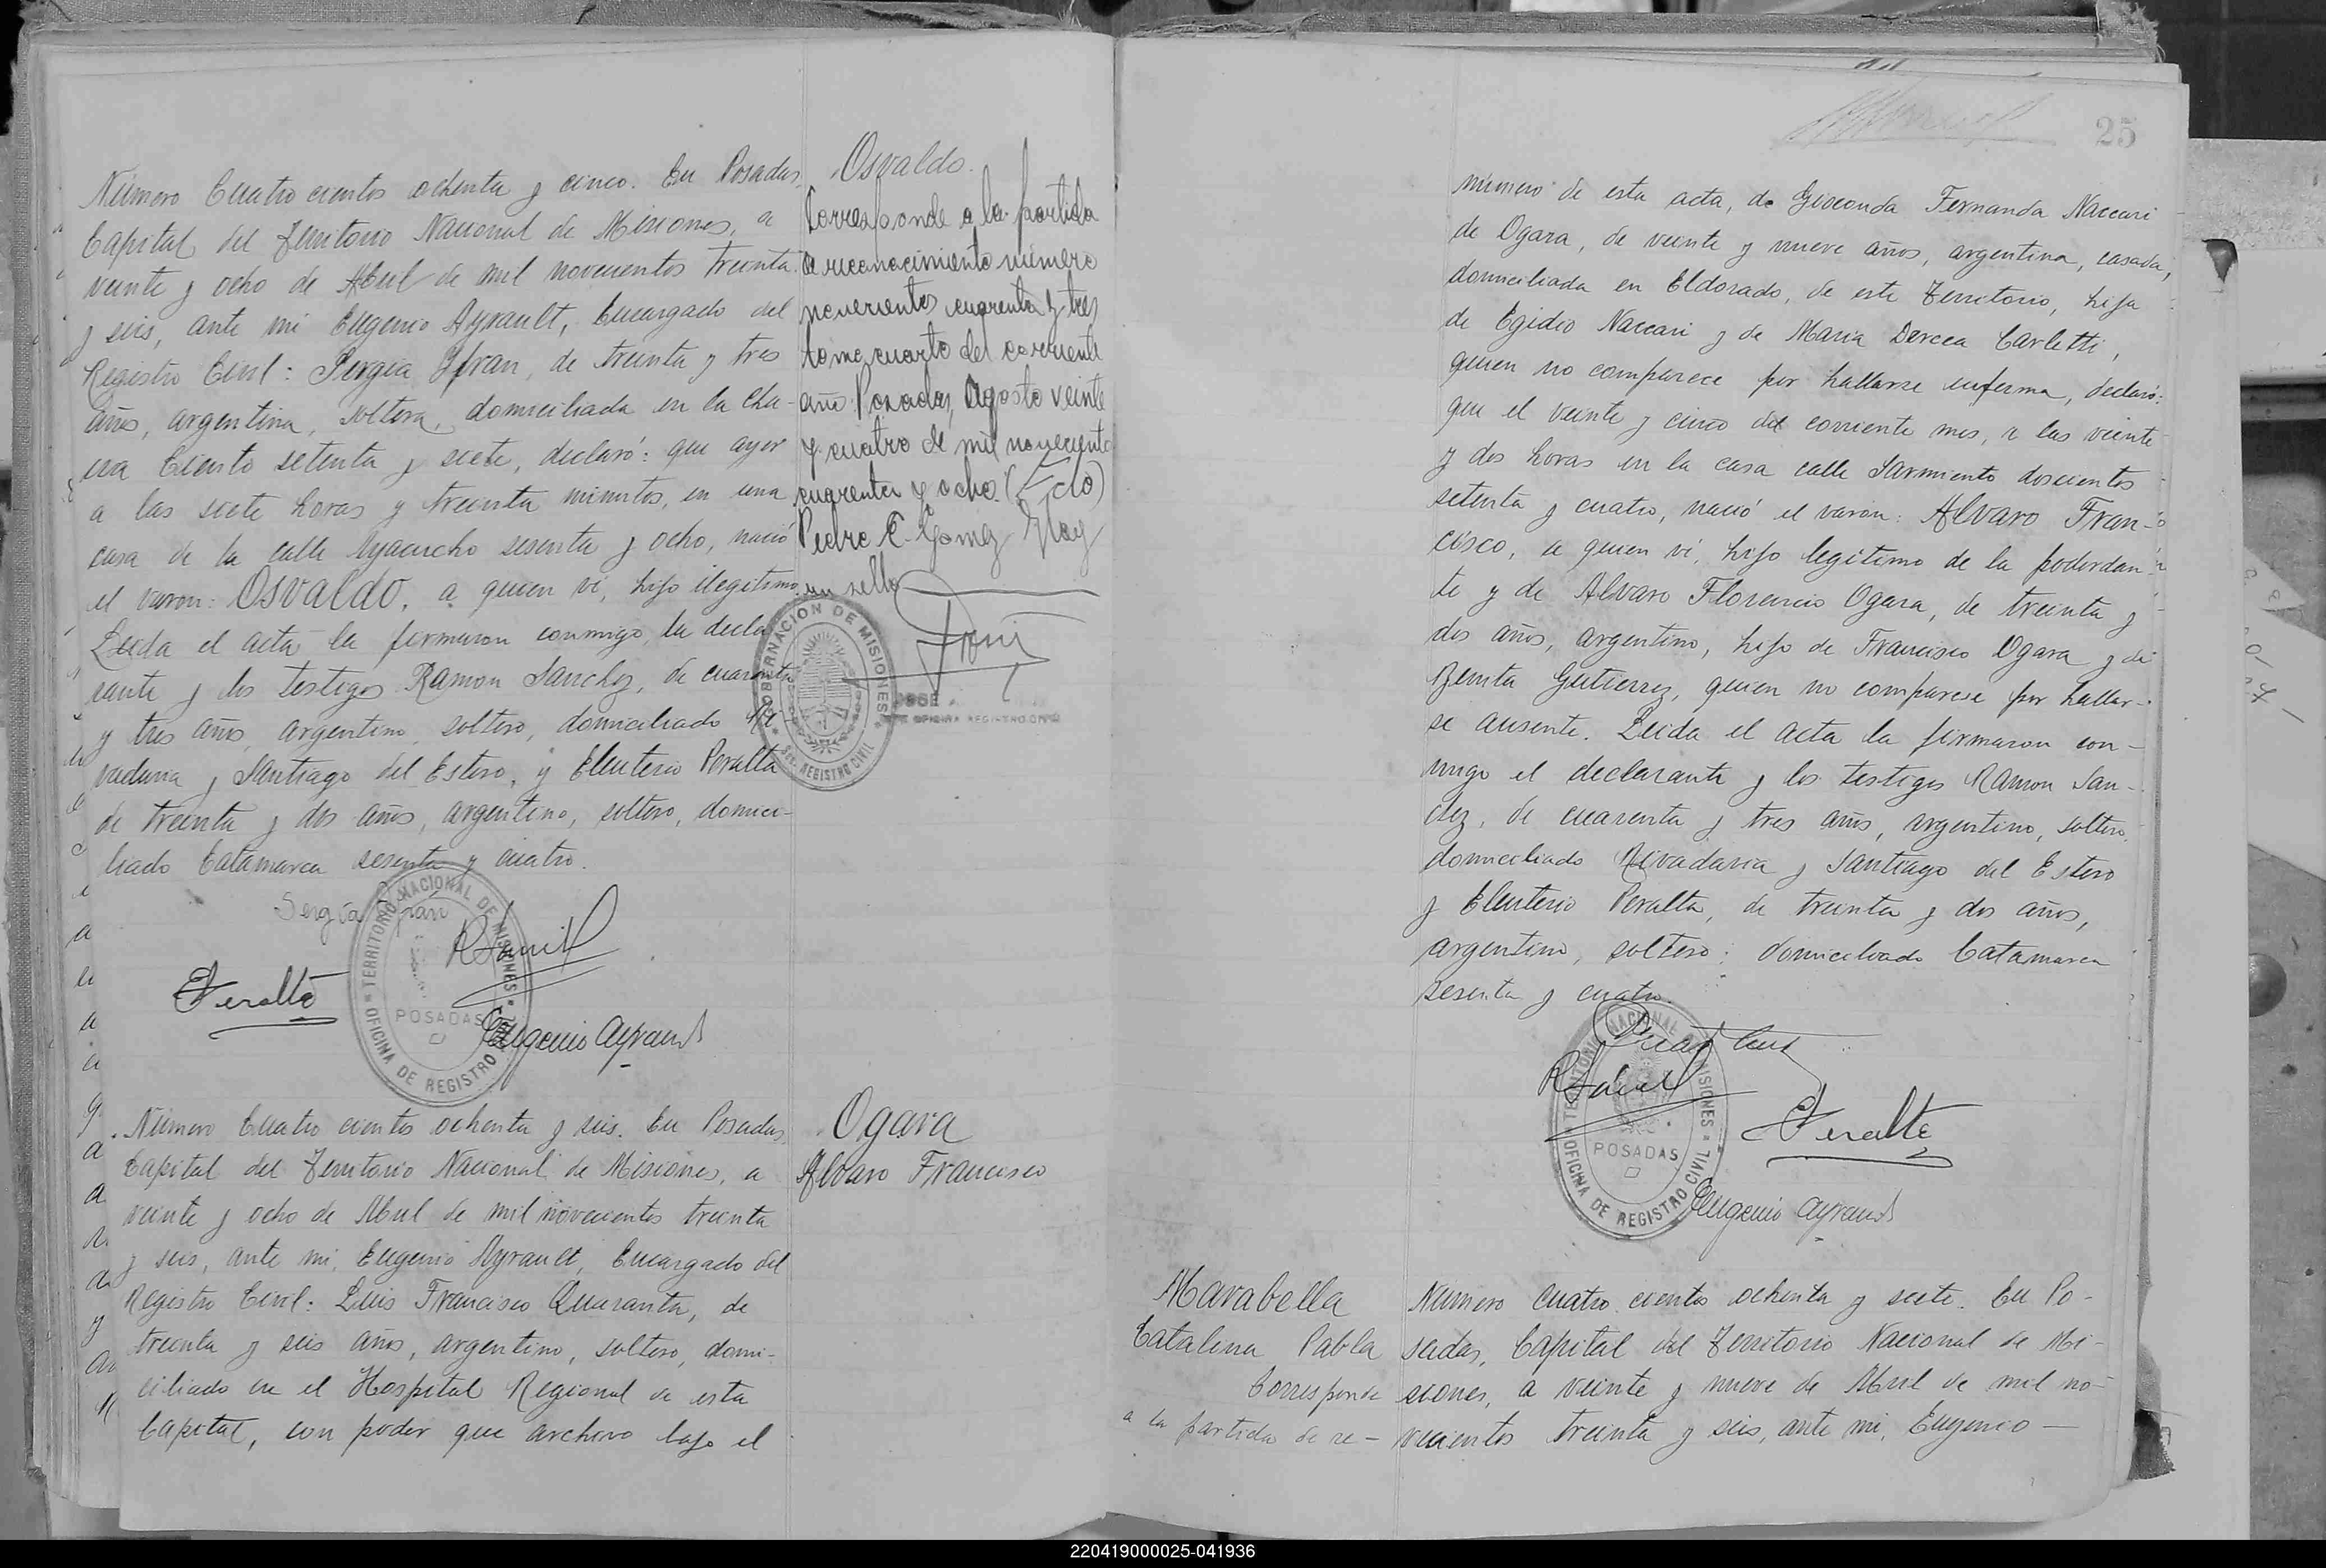 Número Cuatro cientos ochenta y cinco. En Posadas,
Capital del Territorio Nacional de Misiones, a
veinte y ocho de Abril de mil novecientos treinta
y seis, ante mi Eugenio Ayrault, Encargado del
Registro Civil: Sergia Ifran, de treinta y tres
años, argentina, soltera, domiciliada en la Cha-
cra Ciento setenta y siete, declaró: que ayer
a las siete horas y treinta minutos, en una
casa de la calle Ayacucho sesenta y ocho, nació
el varon: Osvaldo, a quien ví, hijo ilegitimo.
Leida el acta la firmaron conmigo, la decla
rante y los testigos Ramon Sanchez, de cuarenta
y tres años, argentino, soltero, domiciliado Ri-
vadavia y Santiago del Estero, y Eleuterio Peralta
de treinta y dos años, argentino, soltero, domici-
liado Catamarca sesenta y cuatro.
Sergia Ifran
EPeralta
Eugenio Ayrault
TERRITORIO NACIONAL DE MISIONES
POSADAS
OFICINA DE REGISTRO CIVIL
Osvaldo.
Corresponde a la partida
de reconocimiento número
novecientos cuarenta y tres
tomo cuarto del corriente
año. Posadas, Agosto veinte
y cuatro de mil novecientos
cuarenta y ocho. (Fdo)
Pedro E. Gomez Hay
un sello
GOBERNACION DE MISIONES
REGISTRO CIVIL
JOSE
OFICINA REGISTRO CIVIL
Número Cuatro cientos ochenta y seis. En Posadas,
Capital del Territorio Nacional de Misiones, a
veinte y ocho de Abril de mil novecientos treinta
y seis, ante mi, Eugenio Ayrault, Encargado del
Registro Civil: Luis Francisco Quaranta, de
treinta y seis años, argentino, soltero, domi-
ciliado en el Hospital Regional de esta
Capital, con poder que archivo bajo el
Ogara
Alvaro Francisco
25
número de esta acta, de Gioconda Fernanda Naccari
de Ogara, de veinte y nueve años, argentina, casada,
domiciliada en Eldorado, de este Territorio, hija
de Egidio Naccari y de Maria Dercea Carletti,
quien no comparece por hallarse enferma, declaró:
que el veinte y cinco del corriente mes, a las veinte
y dos horas en la casa calle Sarmiento doscientos
setenta y cuatro, nació el varon: Alvaro Fran-
cisco, a quien ví, hijo legitimo de la poderdan-
te y de Alvaro Florencio Ogara, de treinta y
dos años, argentino, hijo de Francisco Ogara y de
Benita Gutierrez, quien no comparece por hallar-
se ausente. Leida el acta la firmaron con-
migo el declarante y los testigos Ramon San-
chez, de cuarenta y tres años, argentino, soltero,
domiciliado Rivadavia y Santiago del Estero
y Eleuterio Peralta, de treinta y dos años,
argentino, soltero; domiciliado Catamarca
sesenta y cuatro.
EPeralta
Eugenio Ayrault
TERRITORIO NACIONAL DE MISIONES
POSADAS
OFICINA DE REGISTRO CIVIL
Marabella
Catalina Pabla
Corresponde
a la partida de re-
Número Cuatro cientos ochenta y siete. En Po-
sadas, Capital del Territorio Nacional de Mi-
siones, a veinte y nueve de Abril de mil no-
vecientos treinta y seis, ante mi, Eugenio
220419000025-041936